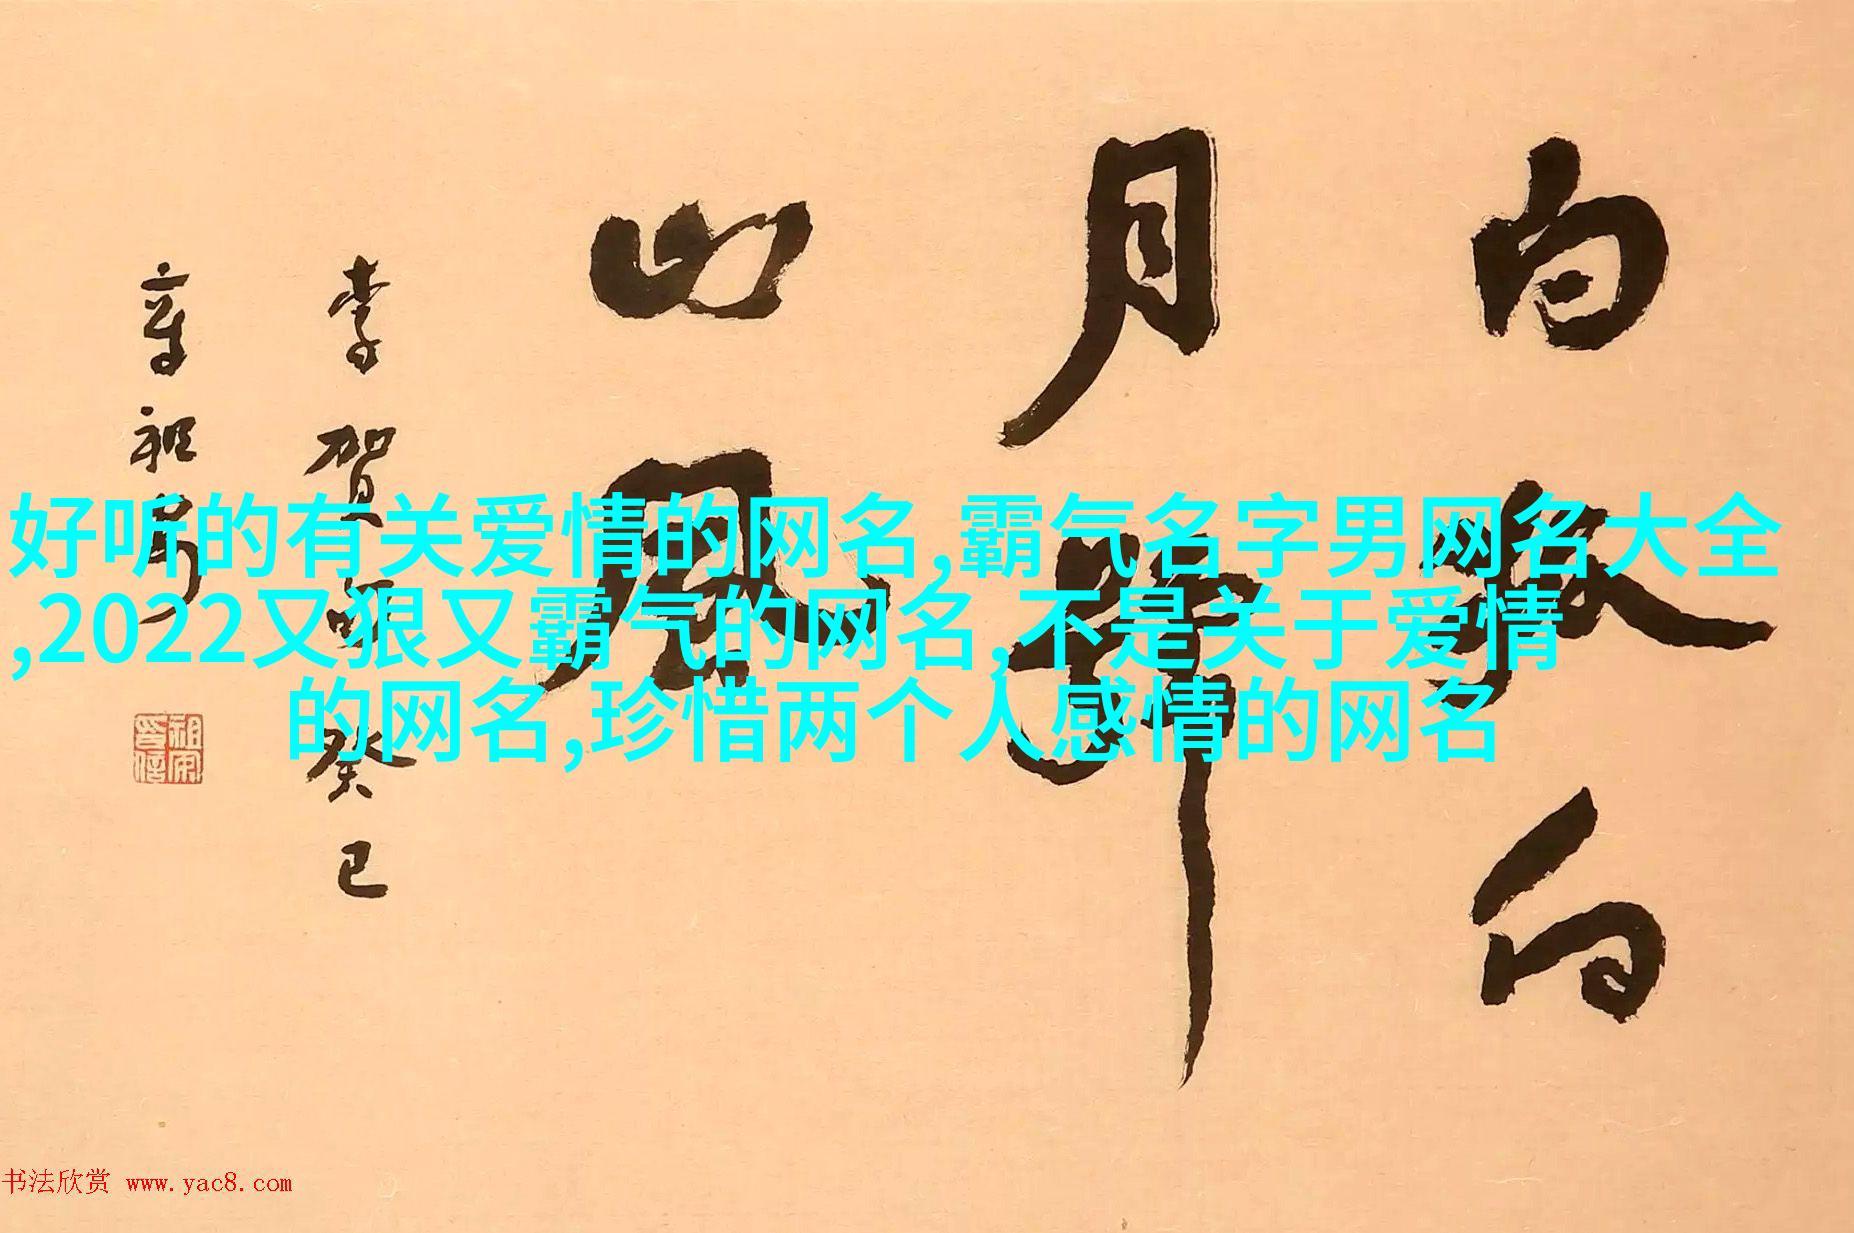 白
月
山风
李贺句癸巳
章祖安
好听的有关爱情的网名,霸气名字男网名大全
,2022又狠又霸气的网名,不是关于爱情
的网名,珍惜两个人感情的网名
书法欣赏 www.yac8.com